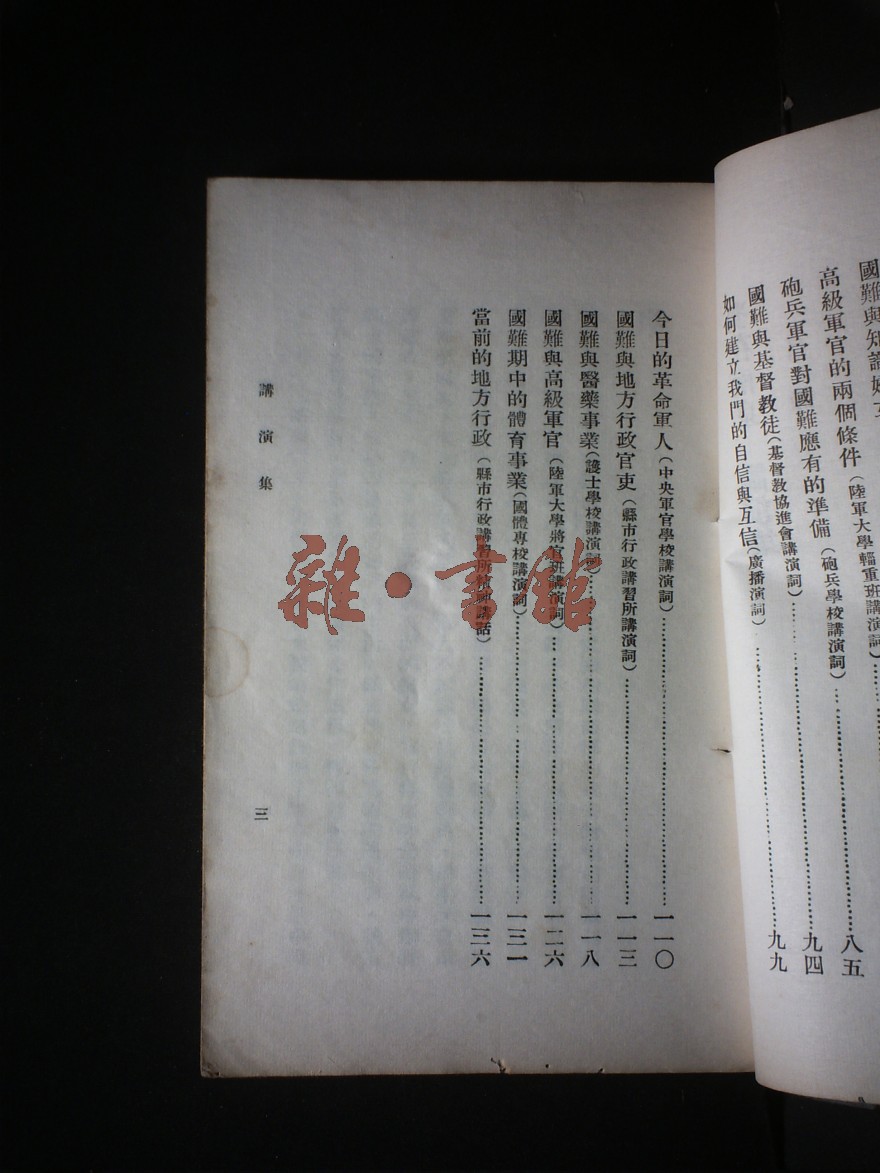 國難與知識婦
高級軍官的兩個條件（陸軍大學輜重班講演詞）
砲兵軍官對國難應有的準備（砲兵學校講演詞）……八五
國難與基督教徒（基督教協進會講演詞）……九四
如何建立我門的自信與互信（廣播演詞）……九九
今日的革命軍人（中央軍官學校講演詞）……一一〇
國難與地方行政官吏（縣市行政講習所講演詞）……一一三
國難與醫藥事業（護士學校講演詞）……一一八
國難與高級軍官（陸軍大學將官班講演詞）……一二六
國難期中的體育事業（國體專校講演詞）……一三一
當前的地方行政（縣市行政講習所精神講話）……一三六
講演集
三
雜·書館